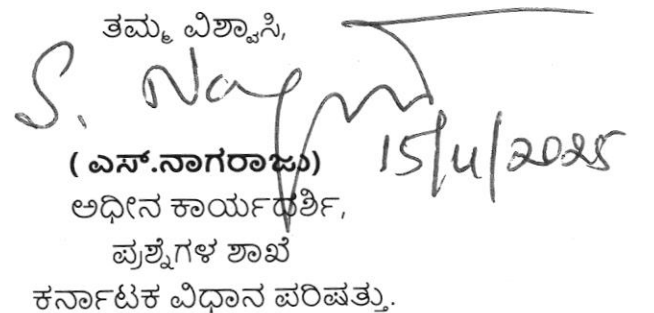 ತಮ್ಮ ವಿಶ್ವಾಸಿ,
S. Nag
15/11/2025
( ಎಸ್.ನಾಗರಾಜು)
ಅಧೀನ ಕಾರ್ಯದರ್ಶಿ,
ಪ್ರಶ್ನೆಗಳ ಶಾಖೆ
ಕರ್ನಾಟಕ ವಿಧಾನ ಪರಿಷತ್ತು.